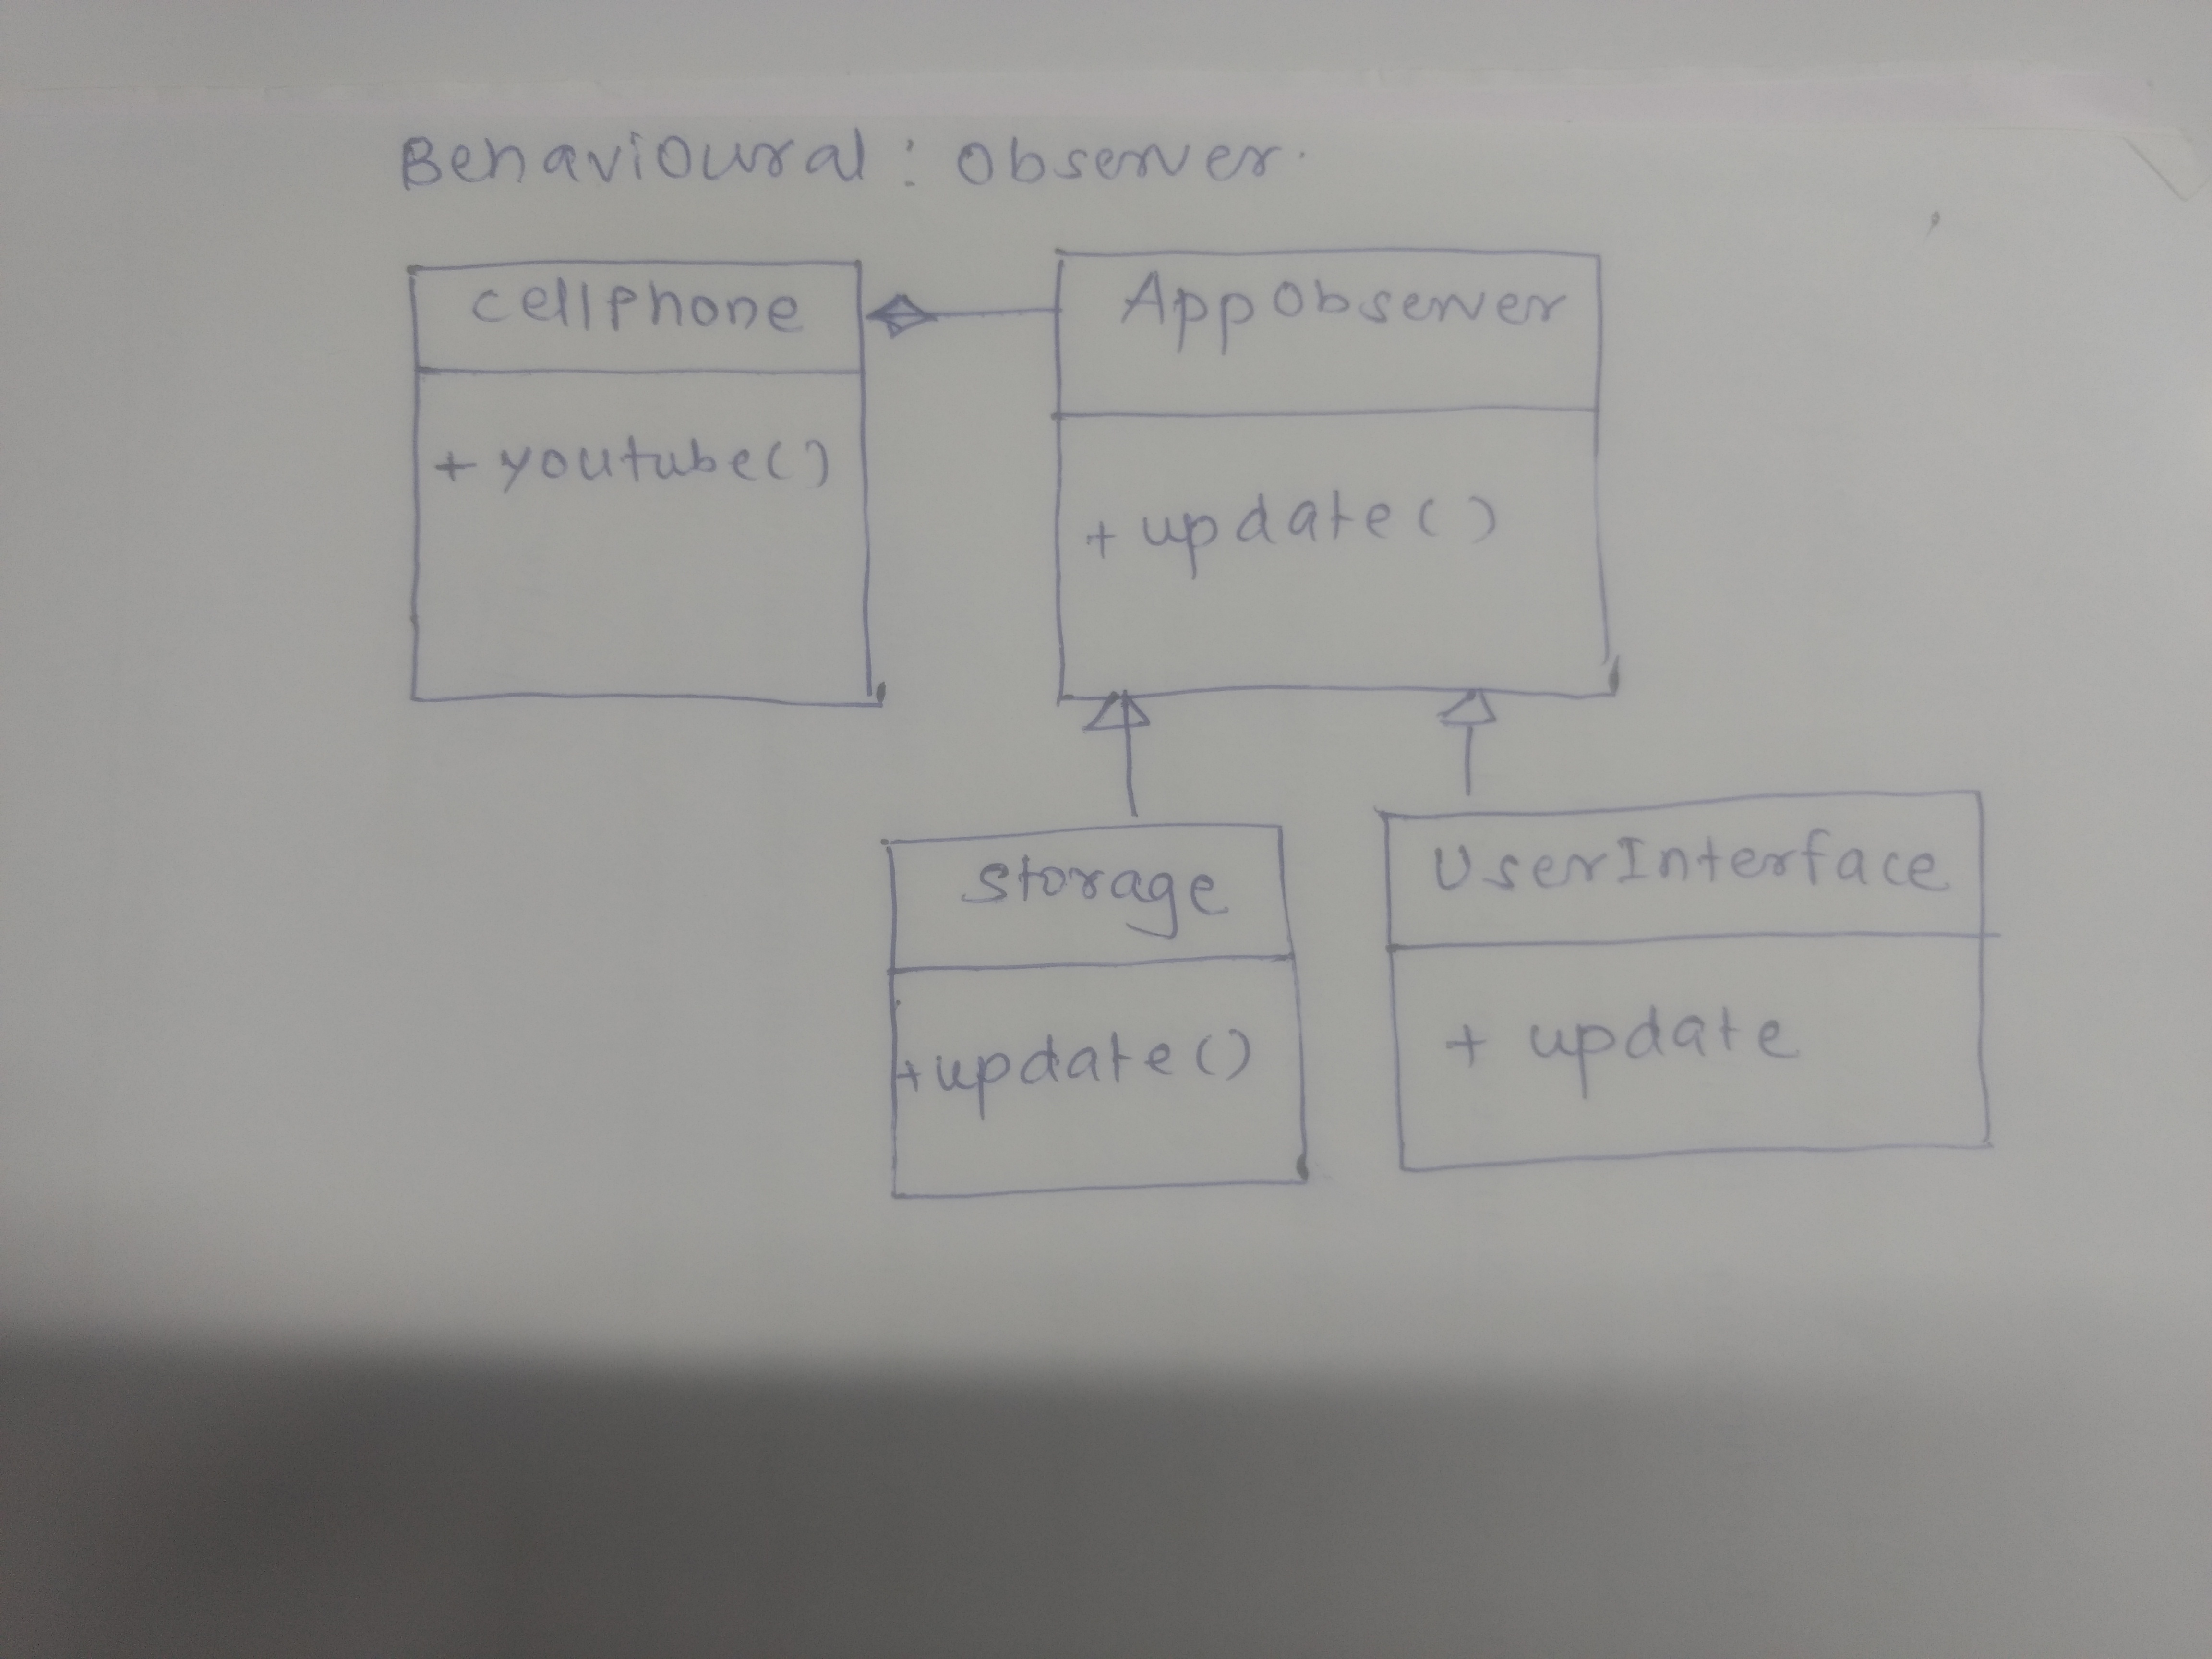 Behavioural : Observer.
cellphone
+ youtube()
AppObserver
+ update()
storage
+update()
UserInterface
+ update